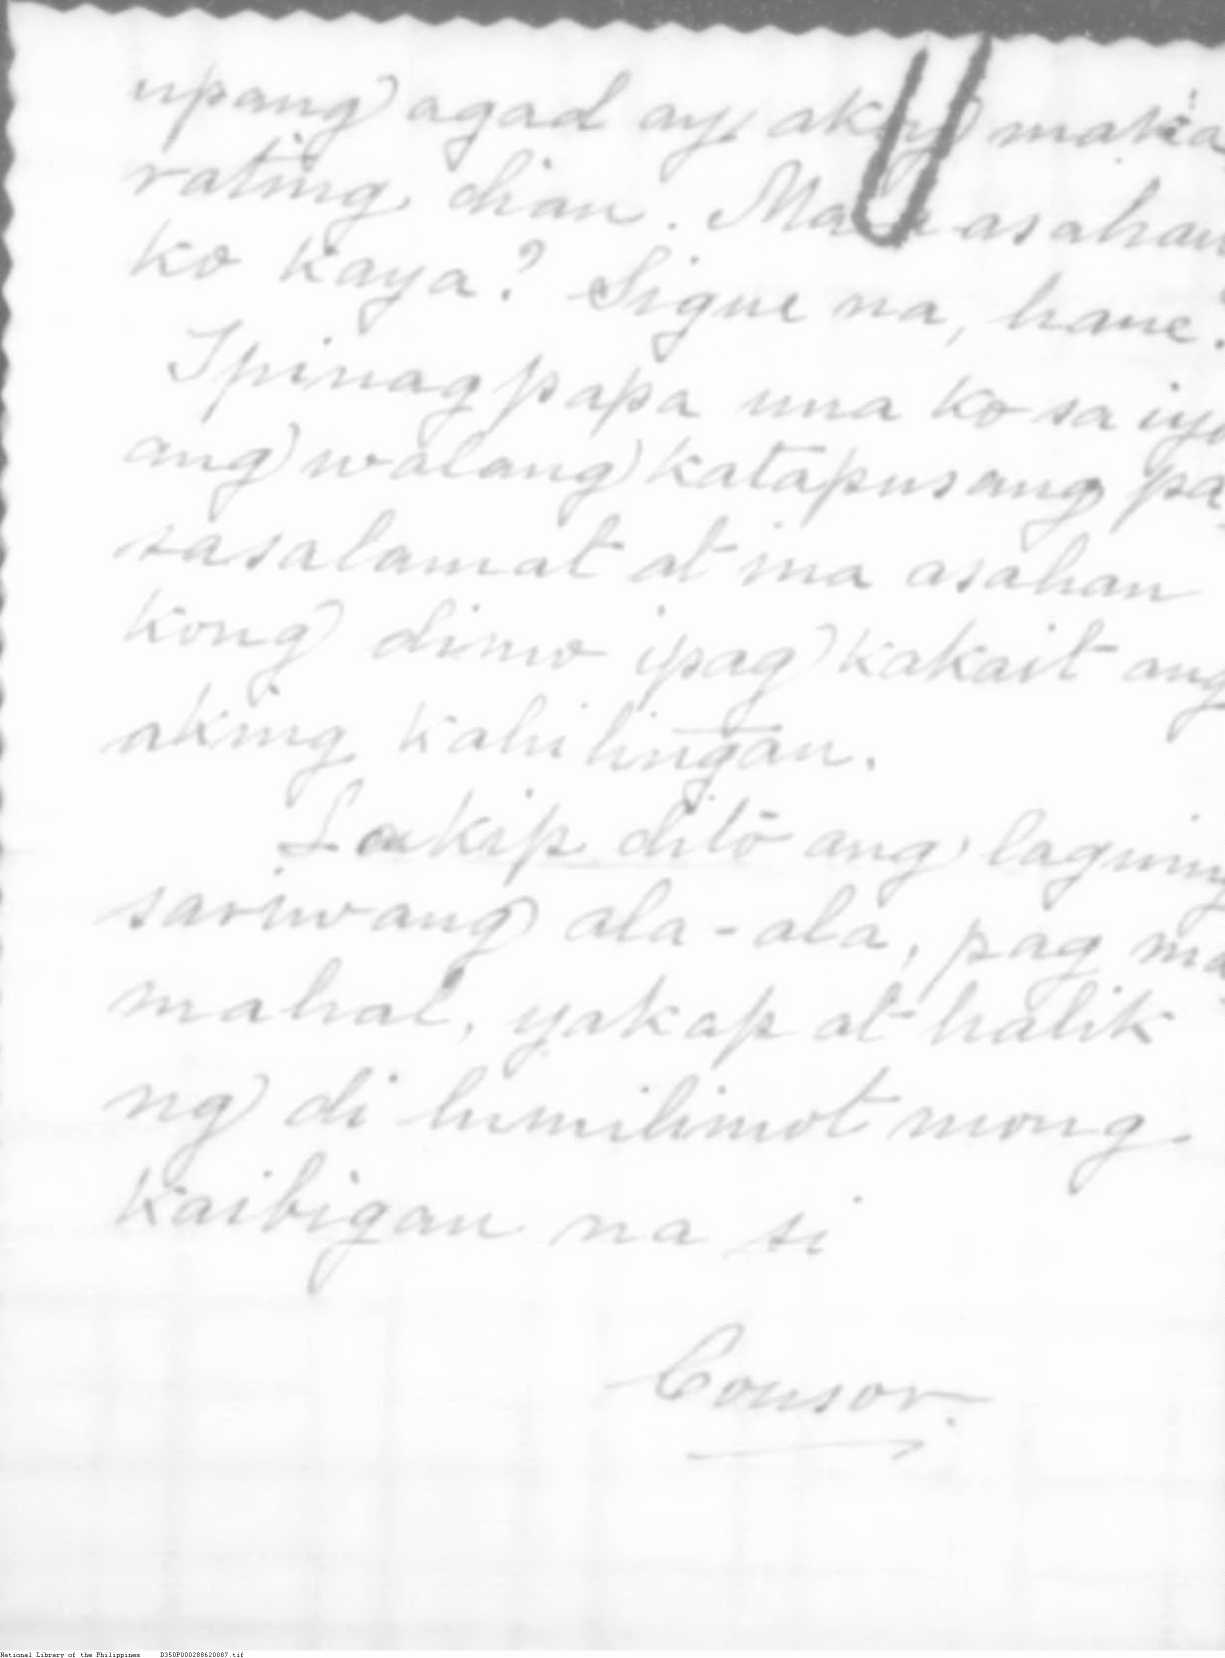 upang agad ay akoy maka
rating dian. Ma asahan
ko kaya? Sigue na, hane?
Ipinagpapa una ko sa iyo
ang walang katapusang pa
sasalamat at ma asahan
kong dimo ipag kakait ang
aking kahilingan.
Lakip dito ang laguing
sariwang ala-ala, pag ma
mahal, yakap at halik
ng di lumilimot mong
kaibigan na si
Consor.
National Library of the Philippines D350P000288620087.tif